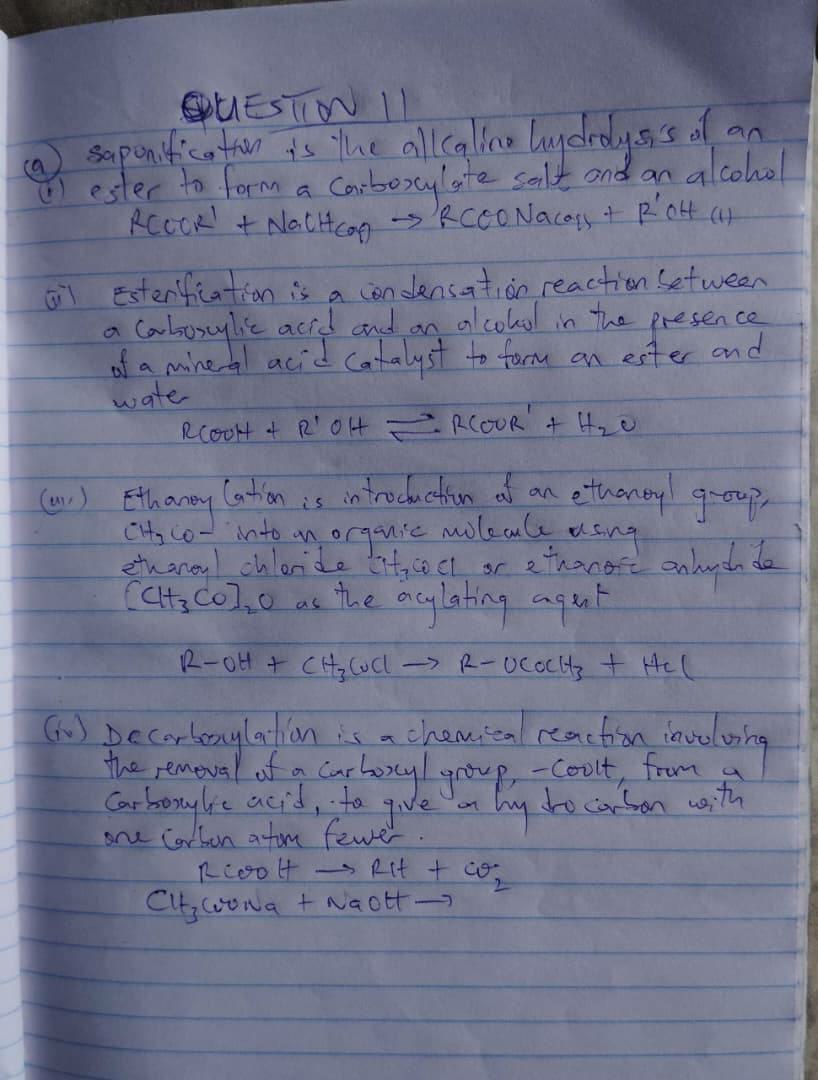 QUESTION 11
(a) saponification is the alkaline hydrolysis of an
(i) ester to form a Carboxylate salt and an alcohol
RCOOR' + NaOH(aq) → RCOONa(aq) + R'OH (l)
ii) Esterification is a condensation reaction between
a Carboxylic acid and an alcohol in the presence
of a mineral acid Catalyst to form an ester and
water
RCOOH + R'OH ⇌ RCOOR' + H₂O
(iii) Ethanoylation is introduction of an ethanoyl group,
CH₃CO- into an organic molecule using
ethanoyl chloride CH₃COCl or ethanoic anhydride
[CH₃CO]₂O as the acylating agent
R-OH + CH₃COCl → R-OCOCH₃ + HCl
(iv) Decarboxylation is a chemical reaction involving
the removal of a Carboxyl group, -COOH, from a
Carboxylic acid, to give a hydrocarbon with
one Carbon atom fewer.
RCOOH → RH + CO₂
CH₃COONa + NaOH →